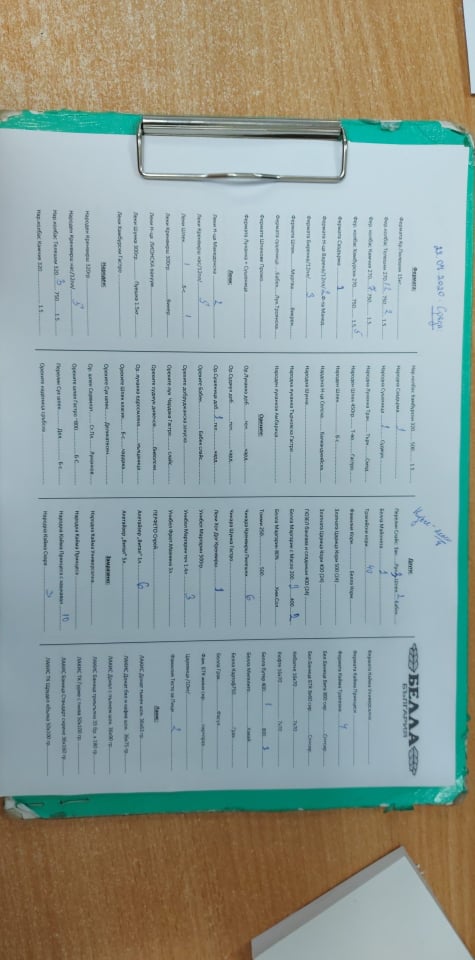 23.09.2020. Сряда
Фермата:
Фермата Кр.Пилешки 15кг
Фер.колбас Телешки 270 12 750 2 1.5
Фер. колбас Камчия 270 7 750 1.5
Фер. колбас Хамбурски 270 750 1.5 5
Фермата Саздърма 1
Фермата Н-ца Варена/12пл/ 2 Ф-ка Макед.
Фермата Биренка/12пл/ 3
Фермата Шпек Муртва Бекрен
Фермата суджупица Бабек Лук.Троянска
Фермата Шпекове Промо
Фермата Луканка + Сушеница
Леки:
Леки Н-ца Македонска 2
Леки Кренвирш нас/12пл/ 5
Леки Шпек 1 б-с 1
Леки Кренвирш 300гр Бекер
Леки Н-ца ЛИОНСКА вакуум
Леки Шунка 300гр Луканка 1.5кг
Леки Хамбурски Гастро
Народен:
Народен Кренвирш 320гр
Народен Кренвирш нас/12пл/ 5
Нар.колбас Телешки 320 3 750 1.5
Нар.колбас Камчия 320 1.5
Нар.колбас Хамбургски 320 500 1.5
Народна Саздърма 1
Народна Сушеница 1 Суджук
Народна Луканка Трап. Търн. Смяд.
Народен Шпек 450гр Т-во Гастро
Народен Шпек б-с
Народна Н-ца Селска Калмандийска
Народна Шунка
Народна луканка Търновска Гастро
Народен луканков Амбарица
Орехите:
Ор.Луканка доб. геч. хард.
Ор.Суджук доб. геч. хард.
Ор.Сушеница доб. 1 геч. хард.
Орехите Бабек Бабек слайс
Орехите добруджанска закуска
Орехите лук Чардака Гастро слайс
Орехите суджук дивечов Биволски
Ор. луканка едросмляна пълдинка
Орехите Шпек класик Б-с чардака
Орехите Сух шпек Деликатесен
Ор. шпек Сервилат Ст.Пл. Луканков
Орехите шпек Гастро ~800 Б-С
Перелик Сух шпек Дел. Б-с
Орехите наденица сръбска
Други:
Перелик Слайс: Бек. Лук. 3 Шпек 2 Бабек
Белла Майонеза 1
Тракийски кори 40
Фамилия Кори Белла Кори
Златната Царица Кори 500 (24)
Златната Царица Кори 400 (24)
ГЮЗЕЛ баклави и сладкиши 400 (24)
Белла Маргарин с Масло 200 3 400 2
Белла Маргарин 80% Уни.Сол
Томми 250 500
Чикара Кренвирш Пилешки 6
Чикара Шунка Гастро
Леки Хот Дог Кренвирш 1
Унибел Маргарин 500гр
Унибел Маргарин теч 1.4л 3
Унибел Фрит Мазнина 5л
ПЕРФЕТО Спрей
Апетайзер „Витал“ 1л 6
Апетайзер „Витал“ 5л
Замразено:
Народна Кайма Универсална
Народна Кайма Принцеса
Народна Кайма Принцеса с кашкавал 10
Народна Кайма Скара 3
БЕЛЛА
БЪЛГАРИЯ
Фермата Кайма Универсална
Фермата Кайма Принцеси
Фермата Кайма Трапезна 4
Бел Баница Вита 800 сир Сп+сир
Бел Баница БТК 8х80 сир Сп+сир
Кебапче 16х70 7х70
Кюфте 16х70 7х70
Белла Бутер 400 1 800 3
Белла Мингелито Хавай
Белла Картоф750 Грах
Белла Грах Фасул
Фам. БТК мини сир
Царевица /10кг/
Фамилия Тесто за Пица 2
Лакис:
ЛАКИС Донат Чакен шок. 36х63 гр.
ЛАКИС Донат бял и кафяв шок. 36х75 гр.
ЛАКИС Донут с пълнеж шок. 36х90 гр.
ЛАКИС Баница триъгълна 35 бр. х 180 гр.
ЛАКИС ТК Гурме с тиква 50х100 гр.
ЛАКИС Баница Стандарт сирене 36х160 гр.
ЛАКИС ТК Щрудел ябълка 50х100 гр.